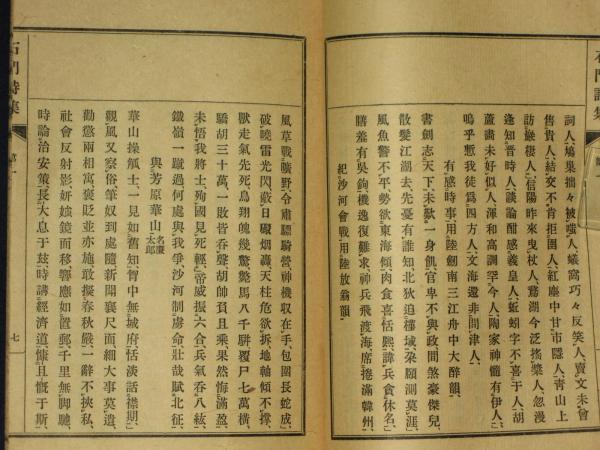 石門詩集
詞人、鳩巣拙々被嗤人、蟻窩巧々反笑人、賣文未曾
售貴人、結交不肯拒人、紅塵中甘市隱人、青山上
訪棲人、信陽昨來曳杖人、鵞湖今泛搖槳人、忽漫
逢知昔時人、談論酣感義皇人、蚯蚓字不喜于人、胡
蘆畵未好似人、渾和高調罕今人、陶家神髓有伊人、
嗚乎慙我徒爲四方人、文海還非問津人、
有感時事、用陸劍南三江舟中大醉韻、
書劍志天下、未歎一身飢、官卑不與政、間煞豪傑兒、
散髪江湖去、先憂有誰知、北狄迫域、朶頤測莫涯、
風魚警不平、勢欲東海傾、肉食喜恬熈、諱兵貪休名、
羞有吳鉤、機逸復難求、神兵飛渡海、席捲滿韓州、
紀沙河會戰、用陸放翁韻、
風草戰曠野、令肅驃騎營、神機収在手、包圍長蛇成、
破曉雷光閃、蔽日礟烟轟、天柱危欲拆、地軸傾不撑、
獸走氣先死、鳥翔魄幾驚、斃馬八千騈、覆尸七萬横、
驕胡三十萬、一敗皆呑聲、胡帥負且乘、果然悔滿盈、
未悟我將士、殉國見死輕、帝威振六合、兵氣呑八紘、
鐵嶺一蹴過、何處與我爭、沙河制虜命、壯哉賦北征、
與芳原華山名慶太郎
華山操觚士、一見如舊知、胷中無城府、恬淡話襟期、
觀風又察俗、筆奴到處隨、新聞襄尺面、細大事莫遺、
勸懲兩相寓、褒貶並亦施、敢擬春秋嚴、一辭不挾私、
社會反射影、妍媸鏡面移、響應如置郵、千里無脚馳、
時論治安策、長大息于玆、時講經濟道、慷且慨于斯、
石門詩集
七